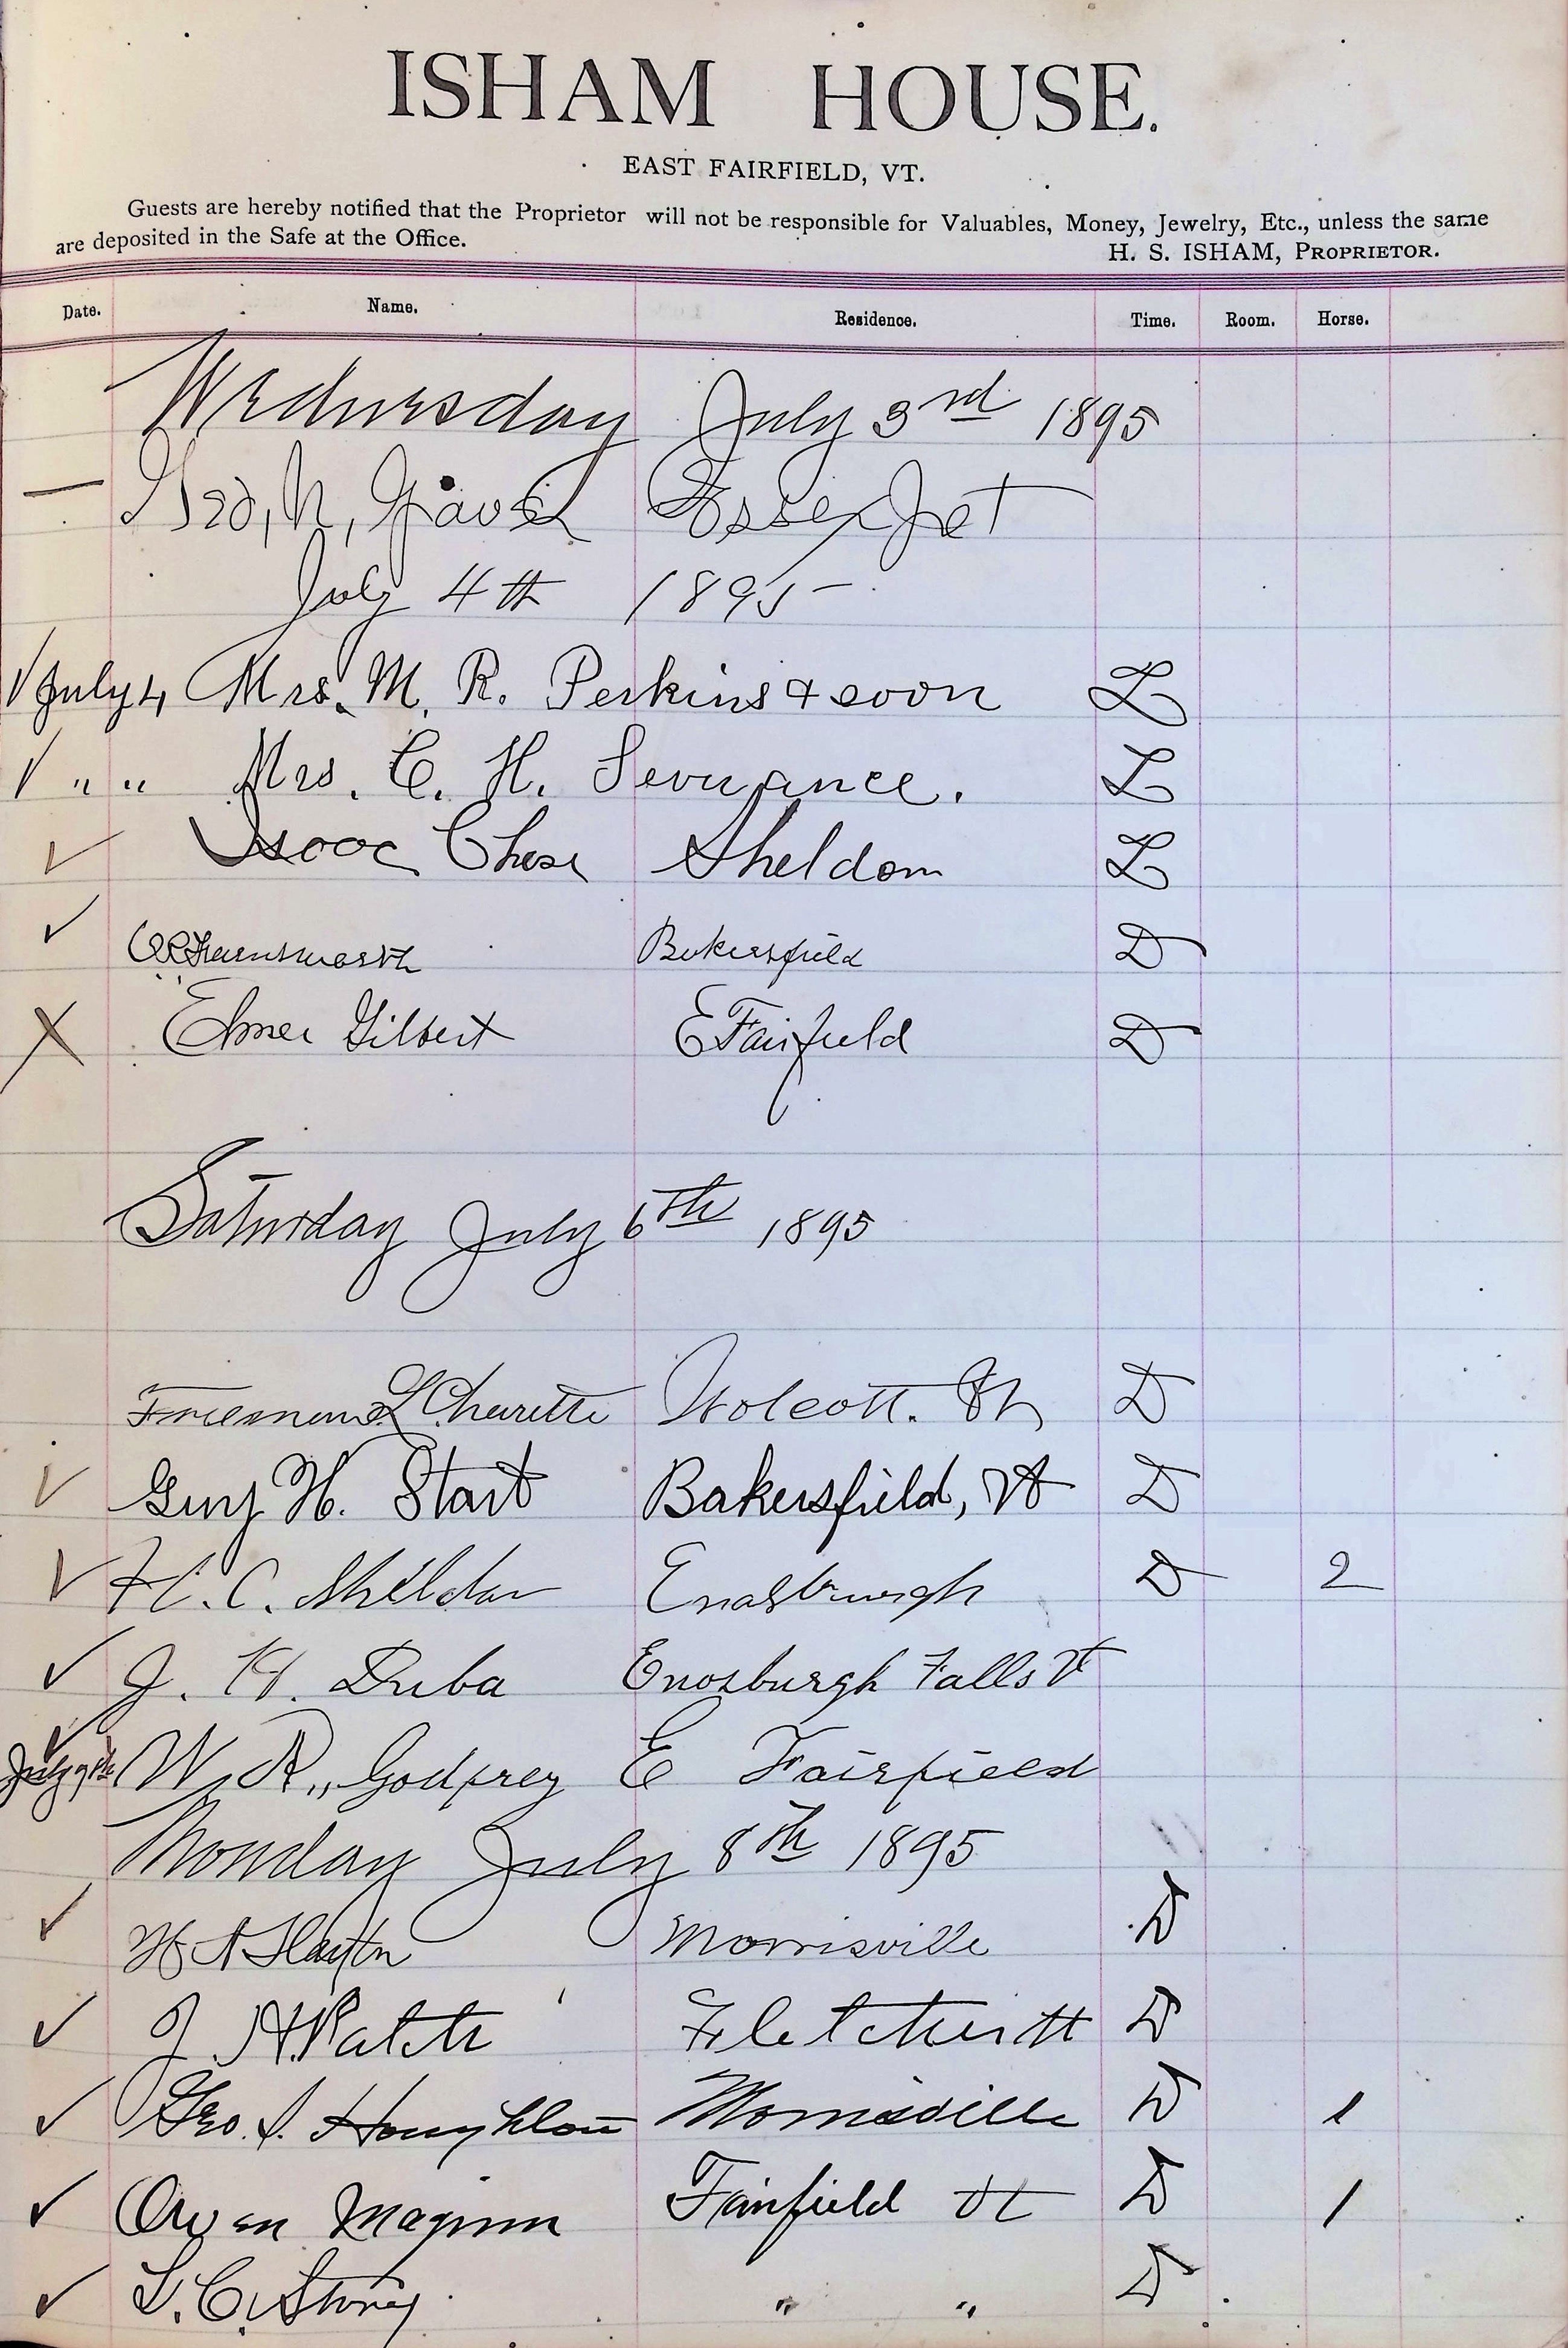 ISHAM HOUSE.
EAST FAIRFIELD, VT.
Guests are hereby notified that the Proprietor will not be responsible for Valuables, Money, Jewelry, Etc., unless the same
are deposited in the Safe at the Office.
H. S. ISHAM, PROPRIETOR.
Date. Name. Residence. Time. Room. Horse.
Wednesday July 3rd 1895
Geo, N, Essex Jct
July 4th 1895
√ July 4 Mrs. M. R. Perkins & soon L
√ " " Mrs. C. H. Severance. L
✓ Isaac Chase Sheldon L
✓ Farnsworth Bakersfield D
X Elmer Gilbert E Fairfield D
Saturday July 6th 1895
Freeman L Charette Wolcott. Vt D
✓ Guy H. Start Bakersfield, Vt D
✓ H. C. Sheldon Enosburgh D 2
✓ J. H. Duba Enosburgh Falls Vt
✓ July W. R., Godfrey E Fairfield
Monday July 8th 1895
✓ H A Slayton Morrisville D
✓ J. H. Patch Fletcher Vt D
✓ Geo. S. Houghton Morrisville D 1
✓ Owen Maginn Fairfield Vt D 1
✓ L. C. Story " " D